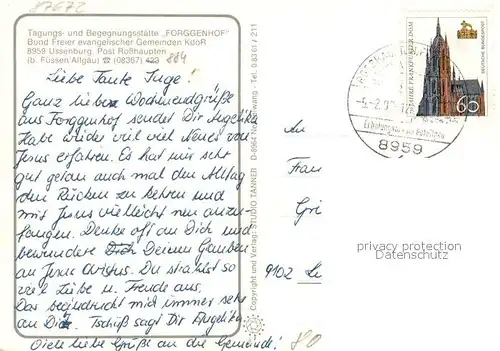 87672
Tagungs- und Begegnungsstätte „FORGGENHOF"
Bund Freier evangelischer Gemeinden KdöR
8959 Ussenburg, Post Roßhaupten
(b. Füssen/Allgäu) ☎ (08367) 423 884
Liebe Tante Inge!
Ganz liebe Wochenendgrüße
aus Forggenhof sendet Dir Angelika.
Habe wieder viel viel Neues von
Jesus erfahren. Es hat mir sehr
gut getan auch mal dem Alltag
den Rücken zu kehren und
mit Jesus vielleicht neu anzu-
fangen. Denke oft an Dich und
bewundere Dich Deinen Glauben
an Jesus Christus. Du strahlst so
viel Liebe u. Freude aus.
Das beeindruckt mich immer sehr
an Dir. Tschüß sagt Dir Angelika.
Viele liebe Grüße an die Gemeinde!
Copyright und Verlag: STUDIO TANNER D-8964 Nesselwang - Tel. 0 83 61 / 2 11
DEUTSCHE BUNDESPOST
JAHRE FRANKFURTER DOM
60
8959
An
Frau
9102
privacy protection
Datenschutz
80